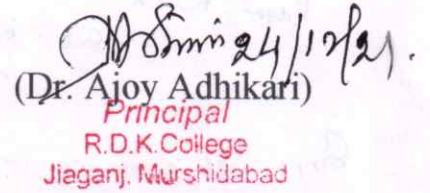 24/12/21.
(Dr. Ajoy Adhikari)
Principal
R.D.K.College
Jiaganj, Murshidabad